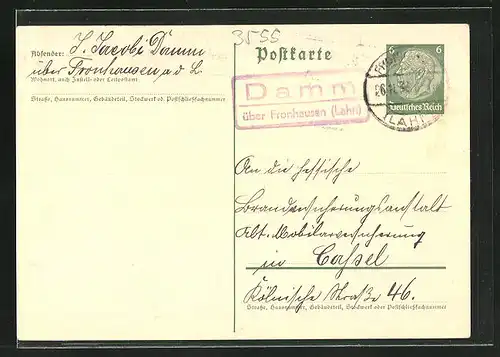 3555
Absender: J. Jacobi Damm
über Fronhausen a. d. L.
Wohnort, auch Zustell- oder Leitpostamt
Straße, Hausnummer, Gebäudeteil, Stockwerk od. Postschließfachnummer
Postkarte
6 6
Deutsches Reich
(LAHN)
Damm
über Fronhausen (Lahn)
An die hessische
Brandversicherungsanstalt
Abt. Mobilarversicherung
in Cassel
Kölnische Straße 46.
Straße, Hausnummer, Gebäudeteil, Stockwerk oder Postschließfachnummer